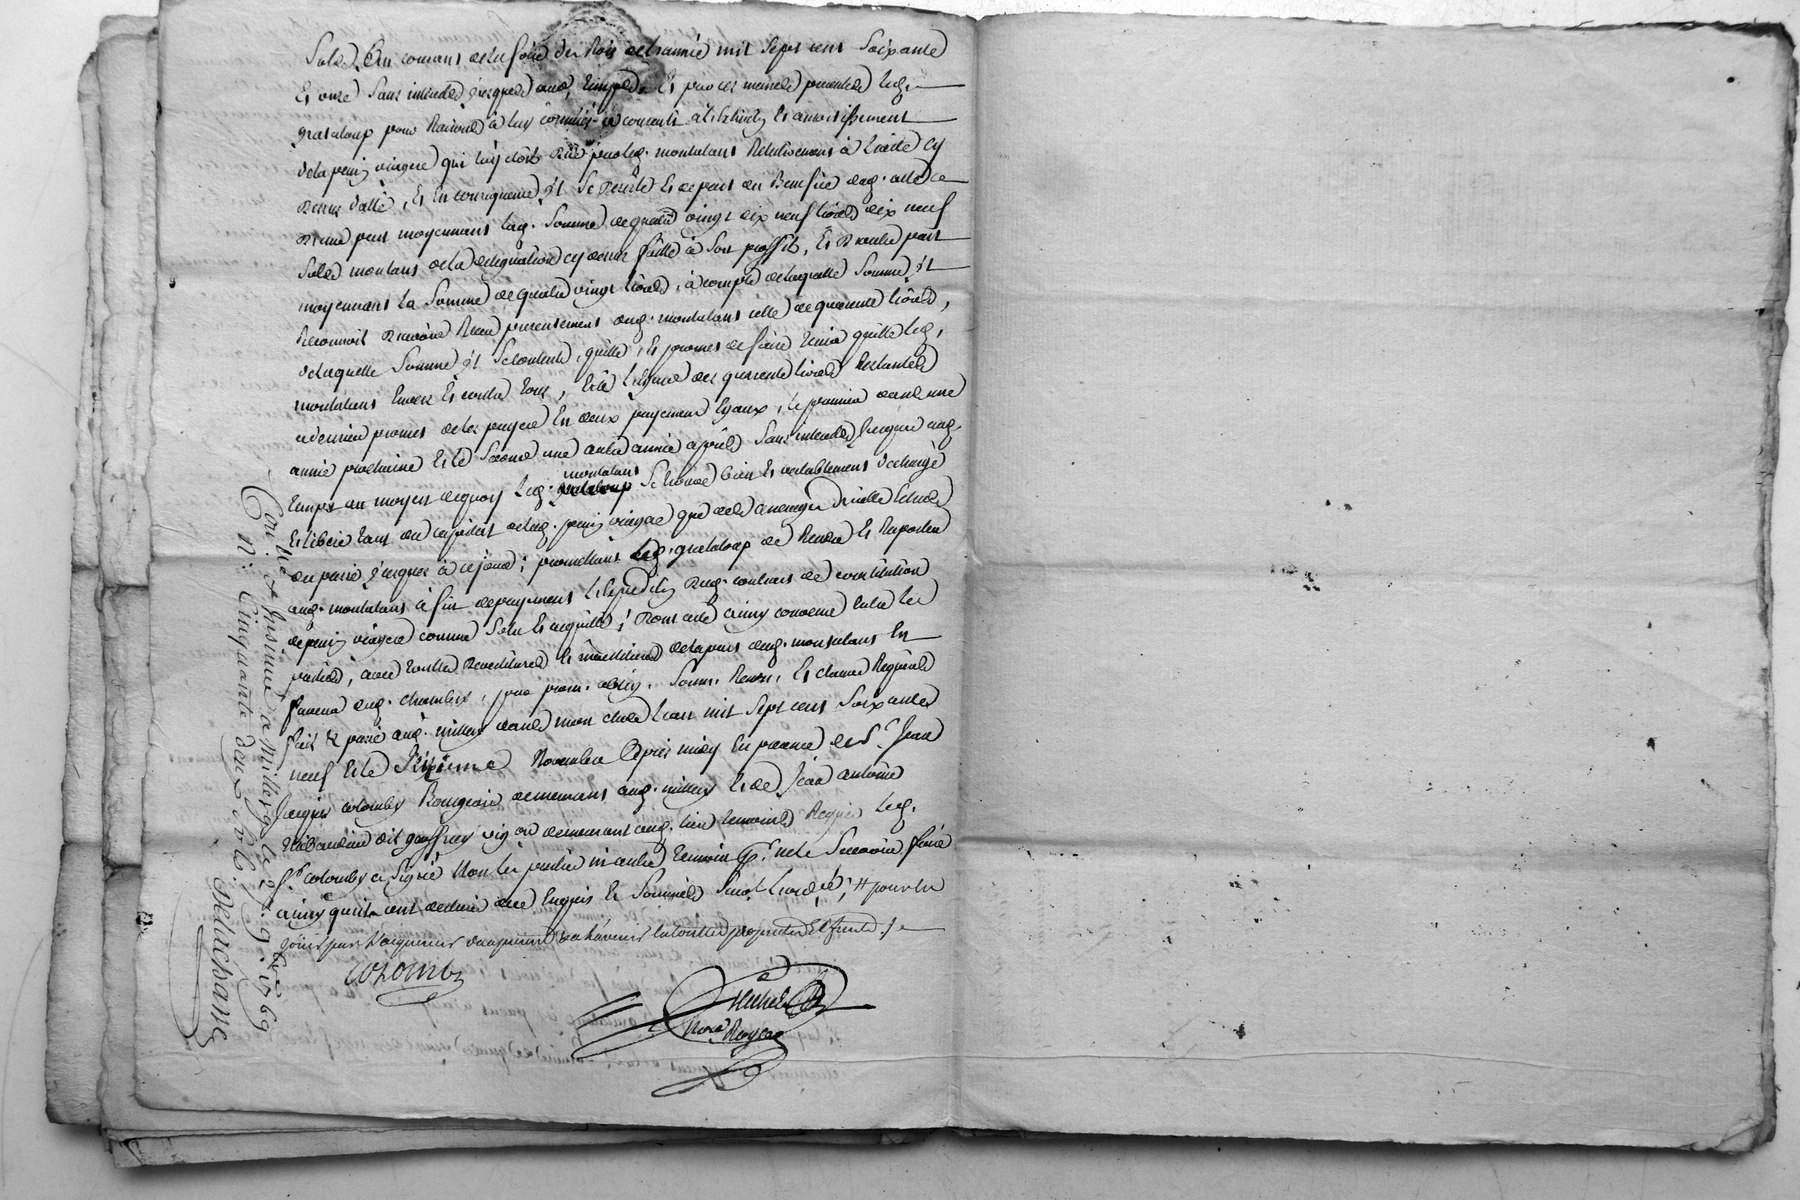 Solde Au courant de la foire des Rois de l'année mil sept cens soixante
Et onze sans interest jusques aud. temps. Et par ces mesmes presentes led.
grataloup pour Raison à luy connües a consenti à l'extinction Et amortissement
de la pention viagere qui luy étoit due par led. montalans Relativement à l'acte cy
dessus datté, Et En consequence il se desiste Et depart du Benefice dud. acte de
d'une part moyennant lad. somme de quatre vingt dix neuf livres dix neuf
Sols montant de la delegation cy dessus faitte à son proffit, Et d'autre part
moyennant la somme de quatre vingt livres, à compte de laquelle somme il
Reconnoit d'avoir Receu presentement dud. montalans celle de quarante livres,
de laquelle somme il se contente, quitte, Et promet de faire tenir quitte led.
montalans Envers Et contre tous, Et à l'egard des quarante livres Restantes
ce dernier promet de les payer En deux payements Egaux, le premier dans une
année prochaine Et le second une autre année après sans interest jusques aud.
temps au moyen de quoy led. montalans se trouve bien Et valablement déchargé
Et libéré tant du capital de lad. pention viagere que des arrerages d'icelle Echus
du passé jusques à ce jour; promettant led. grataloup de Rendre Et Rapporter
aud. montalans à fin de payement l'Expedition dud. contrat de constitution
de pention viagere comme solu Et acquitté; dont acte ainsy convenu entre les
parties, avec toutes devestitures Et investitures de la part dud. montalans En
faveur dud. chambert, par prom. oblig. soum. Renon. Et clauses Requises
fait Et passé aud. millery dans mon etude l'an mil sept cens soixante
neuf Et le sixieme Novembre après midy En presence de Sr. Jean
Jacques colomby Bourgeois demeurant aud. millery Et de Jean antoine
Thibaudier dit geoffray vigon demeurant aud. lieu temoins Requis led.
Sr. colomby a signé Non les parties ni autre temoin pr. ne le scavoir faire
ainsy qu'ils ont declaré de ce Enquis Et sommés
Colomby
Michel
Nore. Royal
Con.lle & Insinué a Millery le 9. 9bre. 1769
R: Cinquante deux sols. Delachane